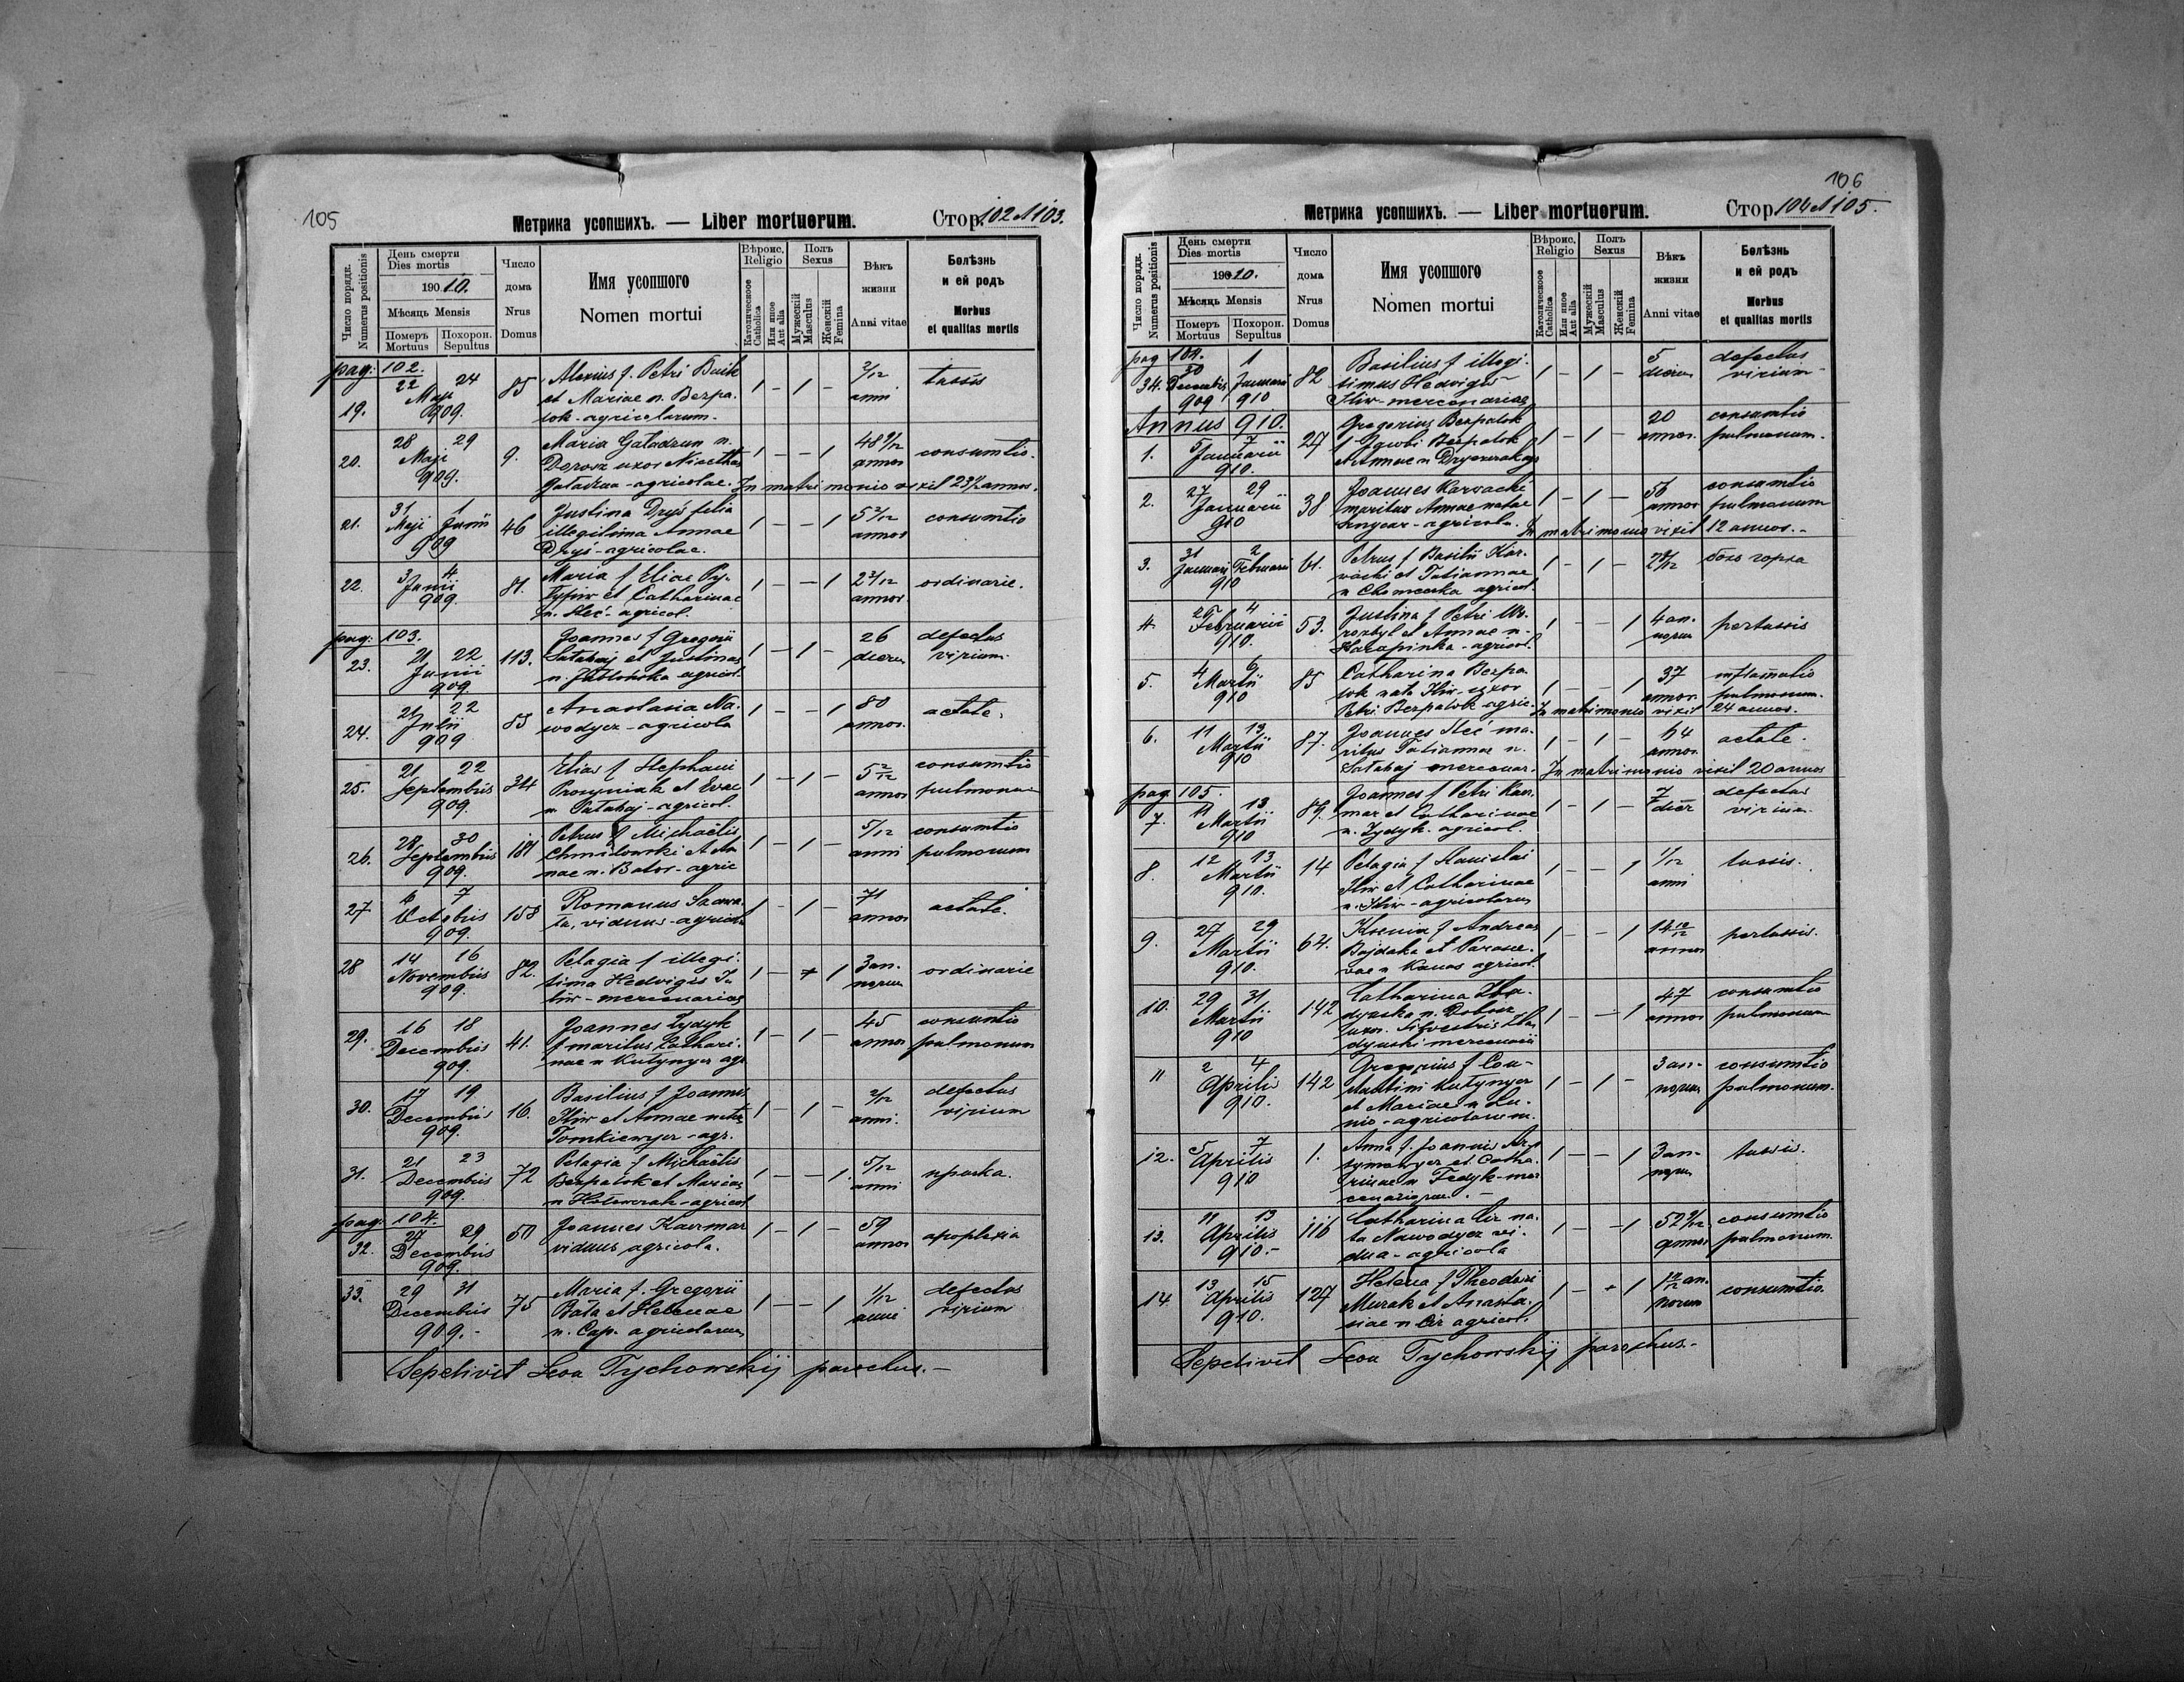 105
Метрика усопшихъ. — Liber mortuorum.
Стор. 102 и 103.
Число порядк. Numerus positionis
День смерти
Dies mortis
190 10.
Мѣсяць Mensis
Померъ Mortuus
Похорон. Sepultus
Число дома Nrus Domus
Имя усопшого
Nomen mortui
Вѣроис. Religio
Католическоое Catholica
Или иное Aut alia
Полъ Sexus
Мужескій Masculus
Женскій Femina
Вѣкъ жизни
Anni vitae
Болѣзнь и ей родъ
Morbus et qualitas mortis
pag: 102.
19. 22 24 Maji 909. 85 Alexius f. Petri Buik 1 - 1 - 2/12 anni tussis
et Mariae n. Bezpa-
lok - agricolarum.
20. 28 29 Maji 909. 9. Maria Gatadzun n. 1 - - 1 48 9/12 annor consumtio.
Derosz uxor Nicethae
Gatadzun - agricolae. In matrimonio vixit 23 1/2 annos.
21. 31 Maji 1 Junii 909 46 Justina Dryś filia 1 - - 1 5 2/12 annor consumtio
illegitima Annae
Dryś - agricolae.
22. 3 4 Junii 909. 81. Maria f Eliae Py- 1 - - 1 2 3/12 annor. ordinarie.
typiw et Catharinae
n. Steć - agricol.
pag: 103.
23. 21 22 Junii 909 113. Joannes f Gregorii 1 - 1 - 26 dierum defectus virium
Satabaj et Justinae
n. Jabłońska agricol.
24. 21 22 Julii 909 83 Anastasia Na- 1 - - 1 80 annor. aetate.
wodycz - agricola
25. 21 22 Septembris 909. 34 Elias f Stephani 1 - 1 - 5 2/12 annor consumtio pulmonum
Prosyniak et Evae
n. Satabaj - agricol.
26. 28 30 Septembris 909. 181 Petrus f Michaëlis 1 - 1 - 5/12 anni consumtio pulmonum
Chmilowski et An-
nae n. Bator - agric
27 6 7 Octobris 909. 158 Romanus Szawa- 1 - 1 - 71 annor aetate.
ta, viduus - agricola
28 14 16 Novembris 909. 82. Pelagia f illegi- 1 - + 1 3 an- norum ordinarie
tima Hedvigis I-
liw - mercenariae
29. 16 18 Decembris 909. 41. Joannes Zydyk 1 - 1 - 45 annor consumtio pulmonum
f maritus Cathari-
nae n Kutynycz agr.
30. 17 19 Decembris 909. 16. Basilius f Joannis 1 - 1 - 2/12 anni. defectus virium
Iliw et Annae natae
Tomkiewycz - agr.
31. 21 23 Decembris 909. 72 Pelagia f Michaëlis 1 - - 1. 5/12 anni
Bezpalok et Mariae
n Hołowczak - agricol
pag: 104.
32. 27 29 Decembris 909. 50 Joannes Kaczmar 1 - 1 - 59 annor apoplexia
viduus agricola.
33. 29 31 Decembris 909. - 75 Maria f. Gregorii 1 - - 1 1/12 anni defectus virium
Bała et Helenae
n. Cap. agricolarum
Sepelivit Leon Tychowskij parochus. -
106
Метрика усопшихъ. — Liber mortuorum.
Стор 104 и 105.
Число порядк. Numerus positionis
День смерти
Dies mortis
190 10.
Мѣсяць Mensis
Померъ Mortuus
Похорон. Sepultus
Число дома Nrus Domus
Имя усопшого
Nomen mortui
Вѣроис. Religio
Католическоое Catholica
Или иное Aut alia
Полъ Sexus
Мужескій Masculus
Женскій Femina
Вѣкъ жизни
Anni vitae
Болѣзнь и ей родъ
Morbus et qualitas mortis
pag 104.
34. 30 Decembris 909 1 Januarii 910 82 Basilius f illegi- 1 - 1 - 5 dierum defectus virium -
timus Hedvigis
Iliw - mercenariae
Annus 910.
1. 5 7 Januarii 910. 27 Gregorius Bezpalok 1 - 1 - 20 annor. consumtio pulmonum.
f Jacobi Bezpalok
et Annae n
2. 27 29 Januarii 910 38 Joannes Karvacki 1 - 1 - 56 annor consumtio pulmonum
maritus Annae natae
agricola. In matrimonio vixit 12 annos. -
3. 31 Januarii 2 Februarii 910 61. Petrus f Basilii Kar- 1 - 1 - боль горла
vacki et Tatiannae
n agricol.
4. 4 Februarii 910. 53. Justina f Petri Wo- 1 - - 1 4 an- norum pertussis
roztyl et Annae n.
Harapinka - agricol.
5. 4 6 Martii 910 85 Catharina Bezpa- 1 - - 1 37 annor. inflamatio pulmonum.
lok nata Iliw - uxor
Petri Bezpalok agric. In matrimonio vixit 24 annos.
6. 11 13 Martii 910 87. Joannes Steć ma- 1 - 1 - 64 annor. aetate.
ritus Tatiannae n.
Satabaj mercenar. In matrimonio vixit 20 annos
pag 105.
7. 11 13 Martii 910 89. Joannes f Petri Kacz- 1 - 1 - 7 dier defectus virium
mar et Catharinae
n. Zydyk. agricol.
8. 12 13 Martii 910. 14 Pelagia f Stanislai 1 - - 1 1/12 anni tussis.
Iliw et Catharinae
n. Iliw - agricolarum
9. 27 29 Martii 910. 64. Ksenia f Andreae 1 - - 1 annor pertussis.
Bajdaka et Parasce-
vae n Kanas agricol.
10. 29 31 Martii 910 142 Catharina Zba- 1 - - 1 47 annor consumtio pulmonum
dynska n.
uxor Silvestris Zba-
dynski mercenarii
11 2 4 Aprilis 910. 142 Gregorius f Con- 1 - 1 - 3 an- norum consumtio pulmonum.
stantini Kutynycz
et Mariae n Lu-
nio - agricolarum.
12. 5 7 Aprilis 910 1. Anna f. Joannis Ar- 1 - - 1 3 an- norum tussis.
tymowycz et Catha-
rinae n Fedyk - mer
cenariorum. -
13. 11 13 Aprilis 910. - 116 Catharina Cir na- 1 - - 1 52 9/12 annor consumtio pulmonum.
ta Nawodycz vi-
dua - agricola
14 13 15 Aprilis 910. 127 Helena f Theodori 1 - + 1 an- norum consumtio.
Murak et Anasta-
siae n Cir agricol.
Sepelivit Leon Tychowskij parochus. -